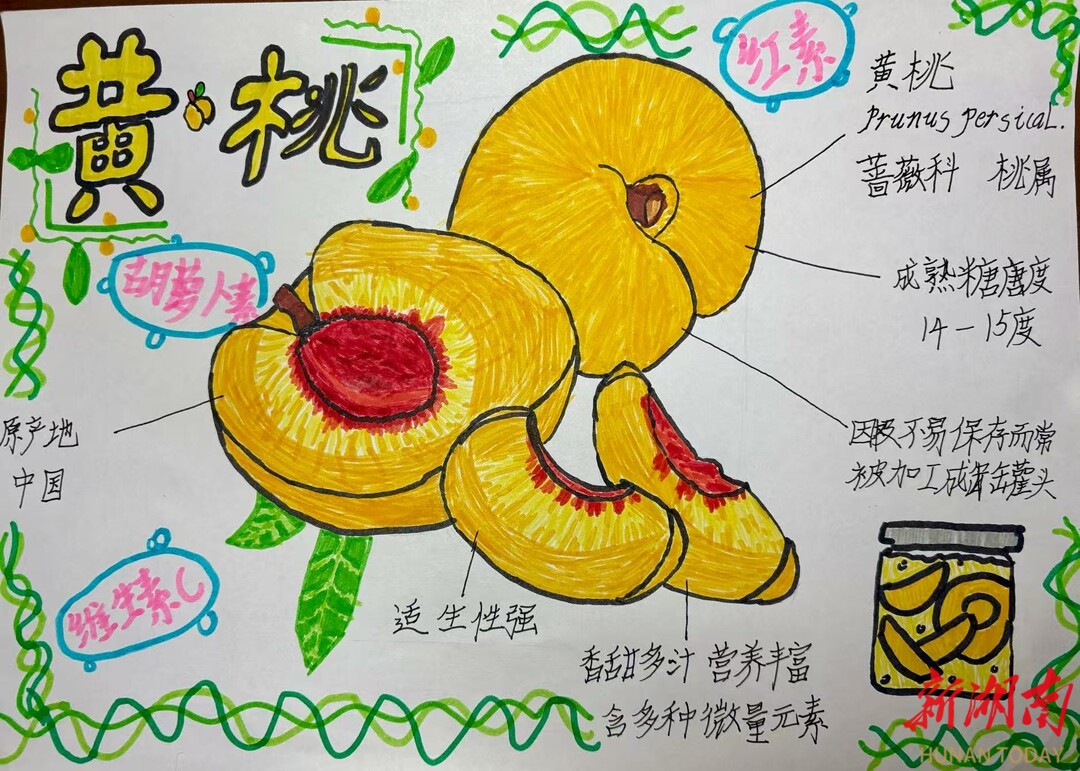 黄桃
红素
黄桃
Prunus persical.
蔷薇科 桃属
胡萝卜素
成熟糖度
14-15度
原产地
中国
因极不易保存而常
被加工成罐头
维生素C
适生性强
香甜多汁 营养丰富
含多种微量元素
新湖南
HUNAN TODAY